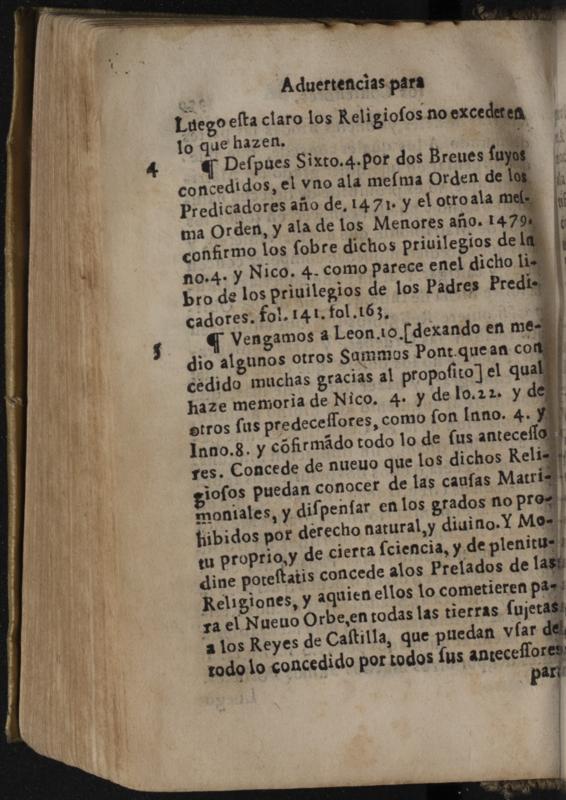 Aduertencias para
Luego esta claro los Religiosos no exceder en
lo que hazen.
4 ¶ Despues Sixto.4.por dos Breues suyos
concedidos, el vno ala mesma Orden de los
Predicadores año de. 1471. y el otro ala mes-
ma Orden, y ala de los Menores año. 1479.
confirmo los sobre dichos priuilegios de In
no.4. y Nico. 4. como parece enel dicho li-
bro de los priuilegios de los Padres Predi-
cadores. fol. 141. fol.163.
5 ¶ Vengamos a Leon.10.[dexando en me-
dio algunos otros Summos Pont.que an con
cedido muchas gracias al proposito] el qual
haze memoria de Nico. 4. y de Io.22. y de
otros sus predecessores, como son Inno. 4. y
Inno.8. y cõfirmãdo todo lo de sus antecesso
res. Concede de nueuo que los dichos Reli-
giosos puedan conocer de las causas Matri-
moniales, y dispensar en los grados no pro-
hibidos por derecho natural,y diuino.Y Mo-
tu proprio,y de cierta sciencia, y de plenitu-
dine potestatis concede alos Prelados de las
Religiones, y aquien ellos lo cometieren pa-
ra el Nueuo Orbe,en todas las tierras sujetas
a los Reyes de Castilla, que puedan vsar de
todo lo concedido por todos sus antecessores
para